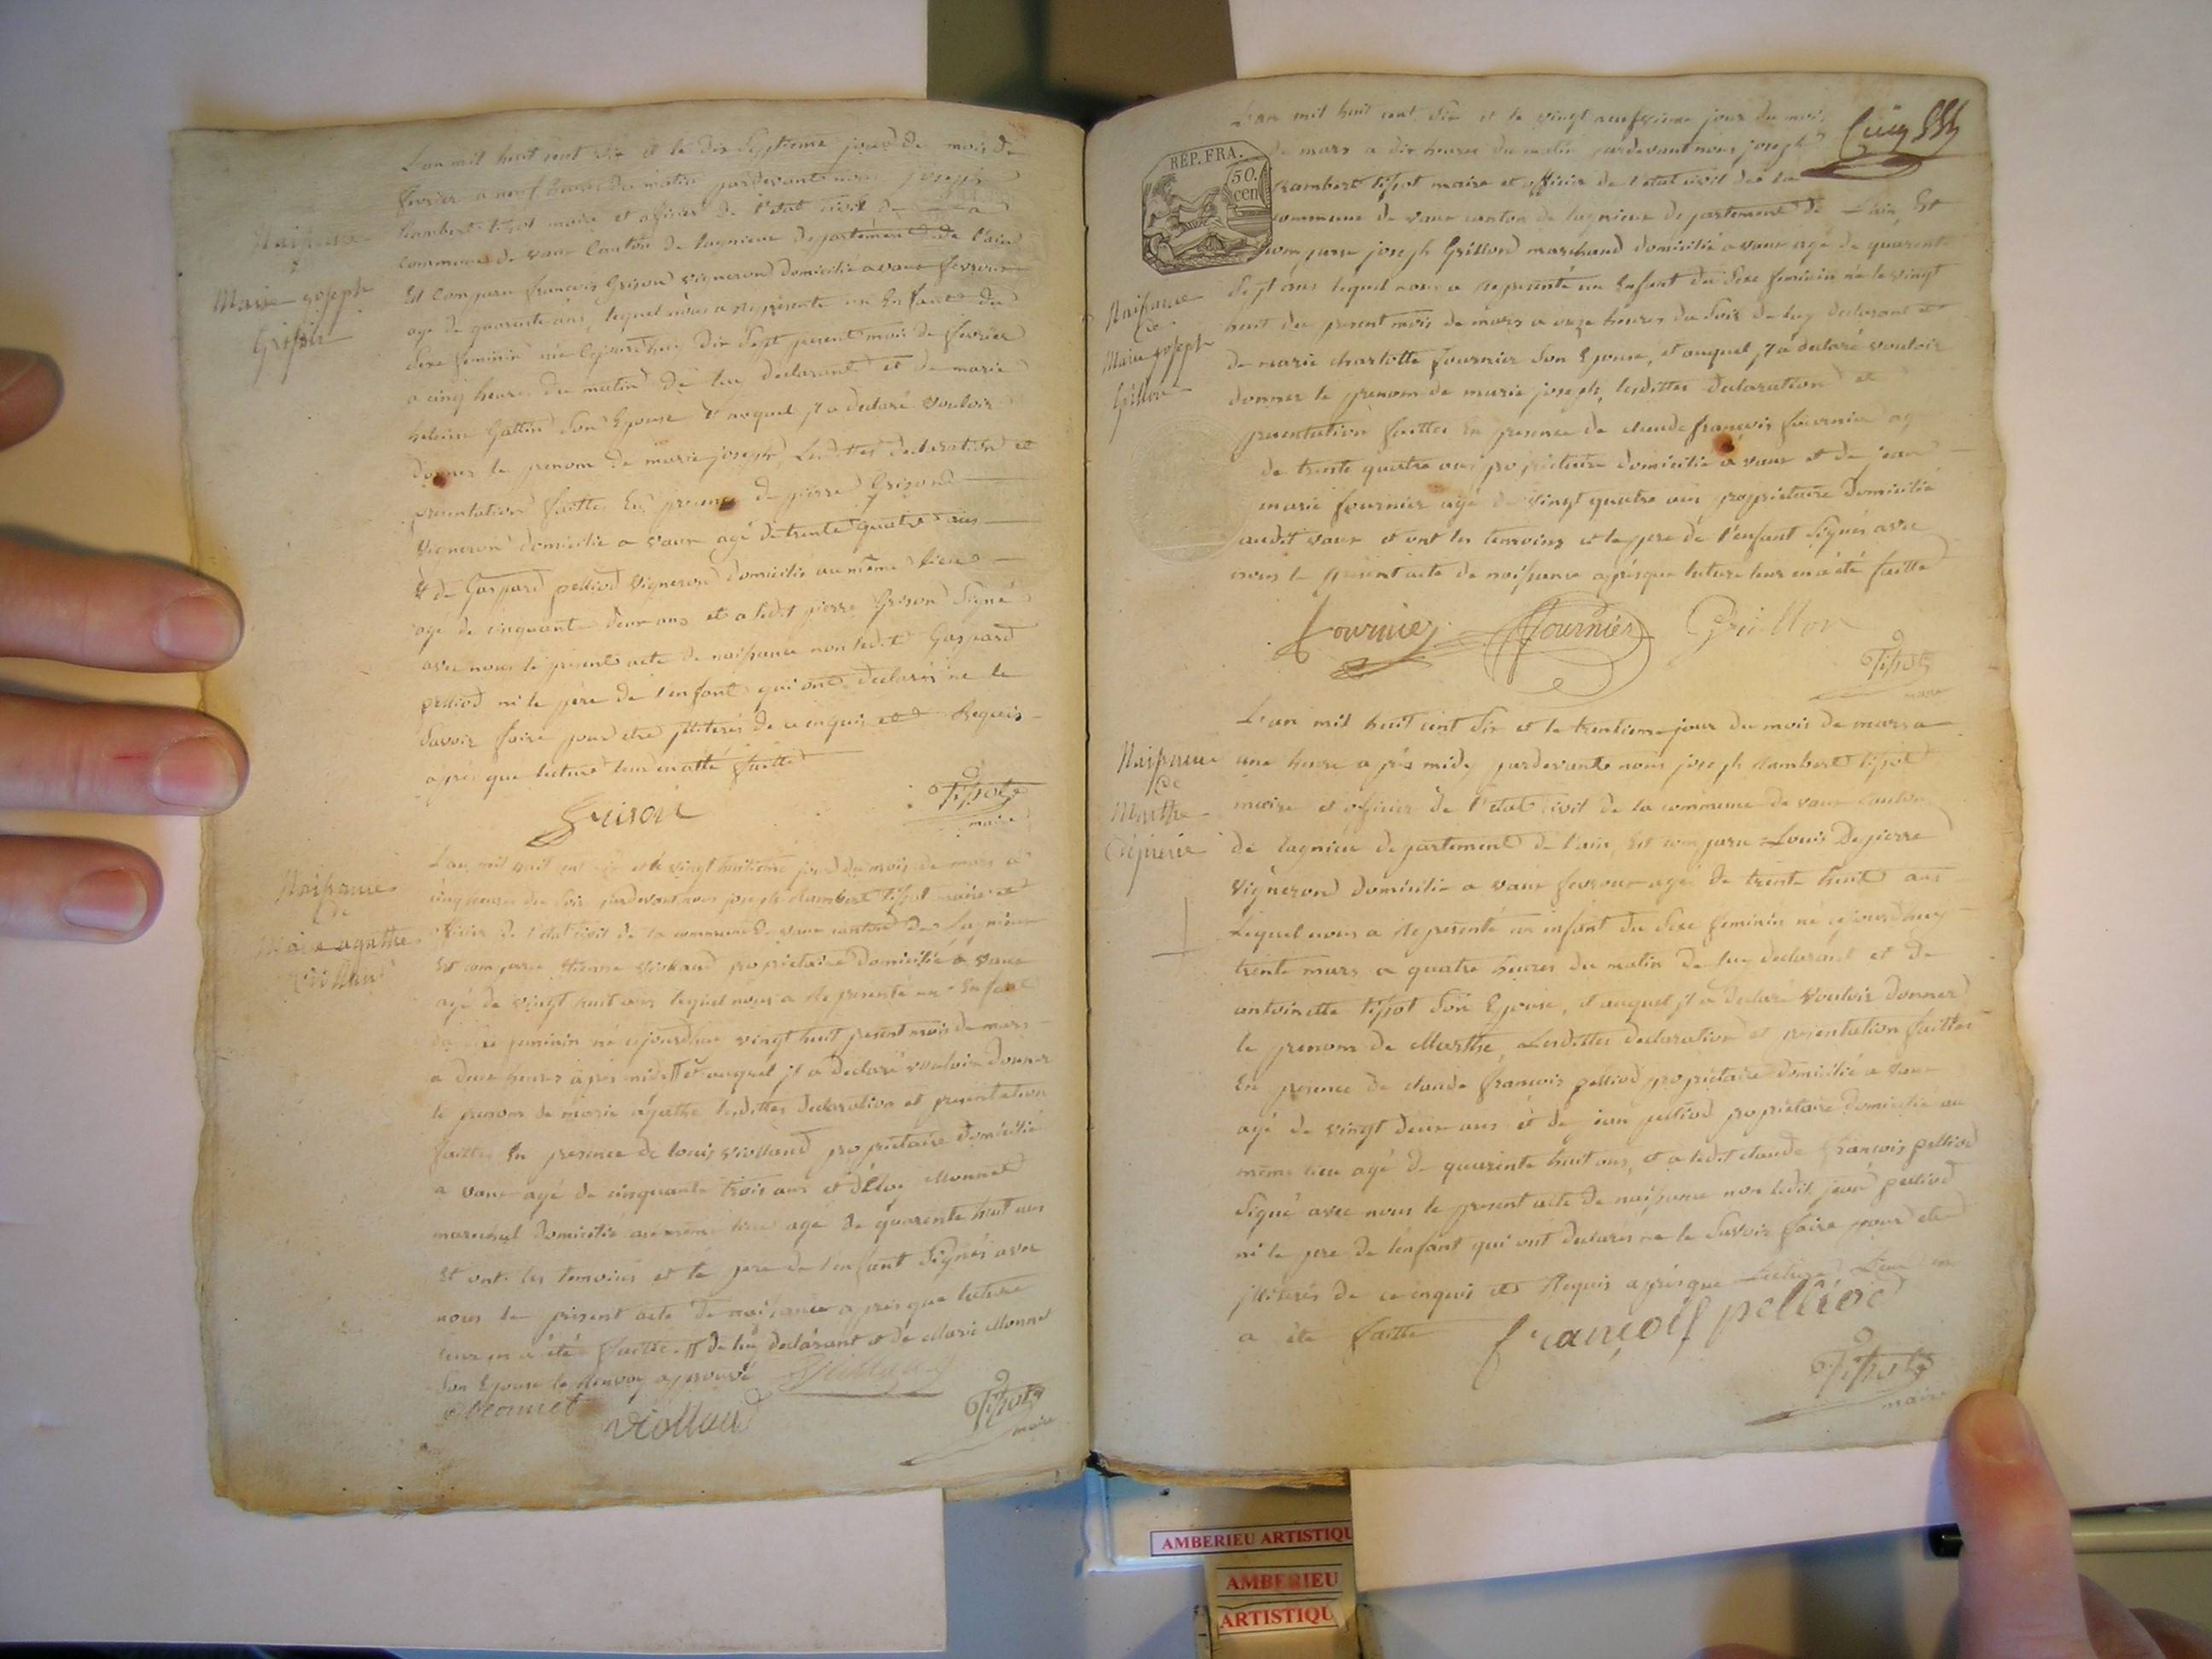 L'an mil huit cent dix et le dix septieme jour du mois de
fevrier a neuf heures du matin pardevant nous joseph
Rambert tissot maire et officier de l'etat civil de la
commune de vaux Canton de lagnieu departement de l'ain
Est Comparu francois Grison vigneron domicilié a vaux fevroux
agé de quarente ans, lequel nous a représenté un Enfant du
sexe feminin née cejourd'huy dix sept present mois de fevrier
a cinq heures du matin de luy declarant et de marie
Gallin son Epouse et auquel jl a declaré vouloir
donner le prenom de marie joseph, Lesdittes declaration et
presentation faittes En presence de pierre Grison
Vigneron domicilié a vaux agé de trente quatre ans
Et de Gaspard pelliod vigneron domicilié au même lieu
agé de cinquante deux ans et a ledit pierre Grison signé
avec nous le présent acte de naissance non ledit Gaspard
pelliod ni le père de l'enfant qui ont declarés ne le
savoir faire pour etre jlliterés de ce enquis et Requis
après que lecture leur en a été faitte
Grison
Tissot
maire
Naissance
Marie joseph
Grison
L'an mil huit cent dix et le vingt huitieme jour du mois de mars a
cinq heures du soir pardevant nous joseph Rambert tissot maire et
officier de l'etat civil de la commune de vaux canton de Lagnieu
Est comparu Etienne Violland propriétaire domicilié a vaux
agé de vingt huit ans lequel nous a Représenté un Enfant
du sexe feminin né cejourd'hui vingt huit present mois de mars
a deux heures après midi # et auquel jl a declaré vouloir donner
le prenom de marie agathe lesdittes declaration et presentation
faittes En présence de louis violland propriétaire domicilié
a vaux agé de cinquante trois ans et d'Eloi Monnet
marechal domicilié au même lieu agé de quarente huit ans
Et ont les temoins et le pere de l'enfant signés avec
nous le présent acte de naissance après que lecture
leur en a été faitte. # de luy declarant et de Marie Monnet
son Epouse le Renvoy approuvé
Monnet
violland
Tissot
maire
Naissance
de
Marie agathe
Violland
L'an mil huit cent dix et le vingt neufvieme jour du mois
de mars a dix heures du matin pardevant nous joseph
Rambert tissot maire et officier de l'etat civil de la
commune de vaux canton de lagnieu departement de L'ain, Est
comparu joseph Grillon marchand domicilié a vaux agé de quarente
sept ans lequel nous a représenté un Enfant du sexe feminin né le vingt
huit du present mois de mars a onze heures du soir de luy declarant et
de marie charlotte fournier son Epouse, et auquel jl a declaré vouloir
donner le prenom de marie joseph, lesdittes declaration et
presentation faittes En presence de claude françois fournier agé
de trente quatre ans propriétaire domicilié a vaux et de jean
marie fournier agé de vingt quatre ans propriétaire domicilié
audit vaux et ont les temoins et le pere de l'enfant signés avec
nous le présent acte de naissance après que lecture leur en a été faitte
fournier fournier Grillon
Tissot
maire
REP. FRA.
50.
cen
Naissance
de
Marie joseph
Grillon
L'an mil huit cent dix et le trentieme jour du mois de mars a
une heure après midy pardevant nous joseph Rambert tissot
maire et officier de l'etat civil de la commune de vaux canton
de lagnieu departement de l'ain, Est comparu Louis Depierre
Vigneron domicilié a vaux fevroux agé de trente huit ans
Lequel nous a Représenté un enfant du sexe feminin né cejourd'huy
trente mars a quatre heures du matin de luy declarant et de
antoinette tissot son Epouse, et auquel jl a declaré vouloir donner
le prenom de Marthe, Lesdittes declaration et presentation faittes
En presence de claude francois pelliod propriétaire domicilié a vaux
agé de vingt deux ans et de jean pelliod propriétaire domicilié au
même lieu agé de quarente huit ans, et a ledit claude francois pelliod
signé avec nous le present acte de naissance non ledit jean pelliod
ni le pere de l'enfant qui ont declarés ne le savoir faire pour etre
jlliterés de ce enquis et Requis après que Lecture Leur en
a été faitte
françois pelliod
Tissot
maire
Naissance
de
Marthe
Depierre
AMBERIEU ARTISTIQU
AMBERIEU
ARTISTIQU